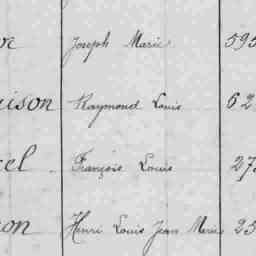 Joseph Marie 595
ison Raymond Louis 62
el François Louis 27
on Henri Louis Jean Marie 25